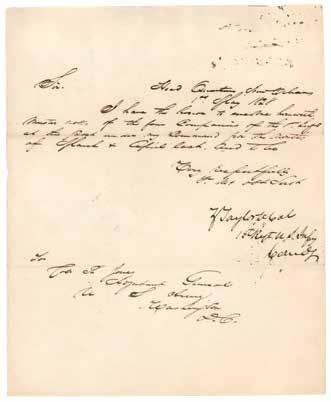 Head Quarters New Orleans
1st May 1828
Sir.
I have the honor to enclose herewith
Muster rolls of the four Companies of the 1st Regt
at this Post under my Command for the months
of March & April last. And to be
Very Respectfully
Yr Obt Servt
Z Taylor Lt Col
1st Regt U S Infy
Comdg
To
Col R Jones
Adjutant General
U S Army
Washington
D. C.